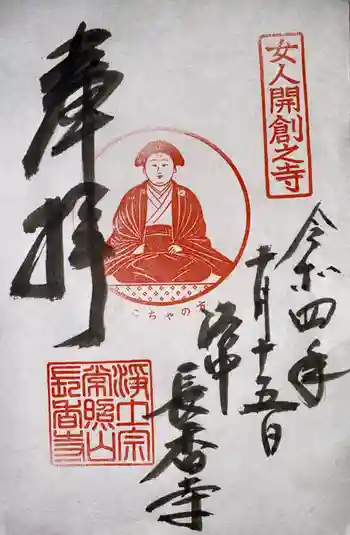 女人開創之寺
奉拝
令和四年
十月十五日
こちゃの方
浄土宗
常照山
長香寺
洛中
長香寺